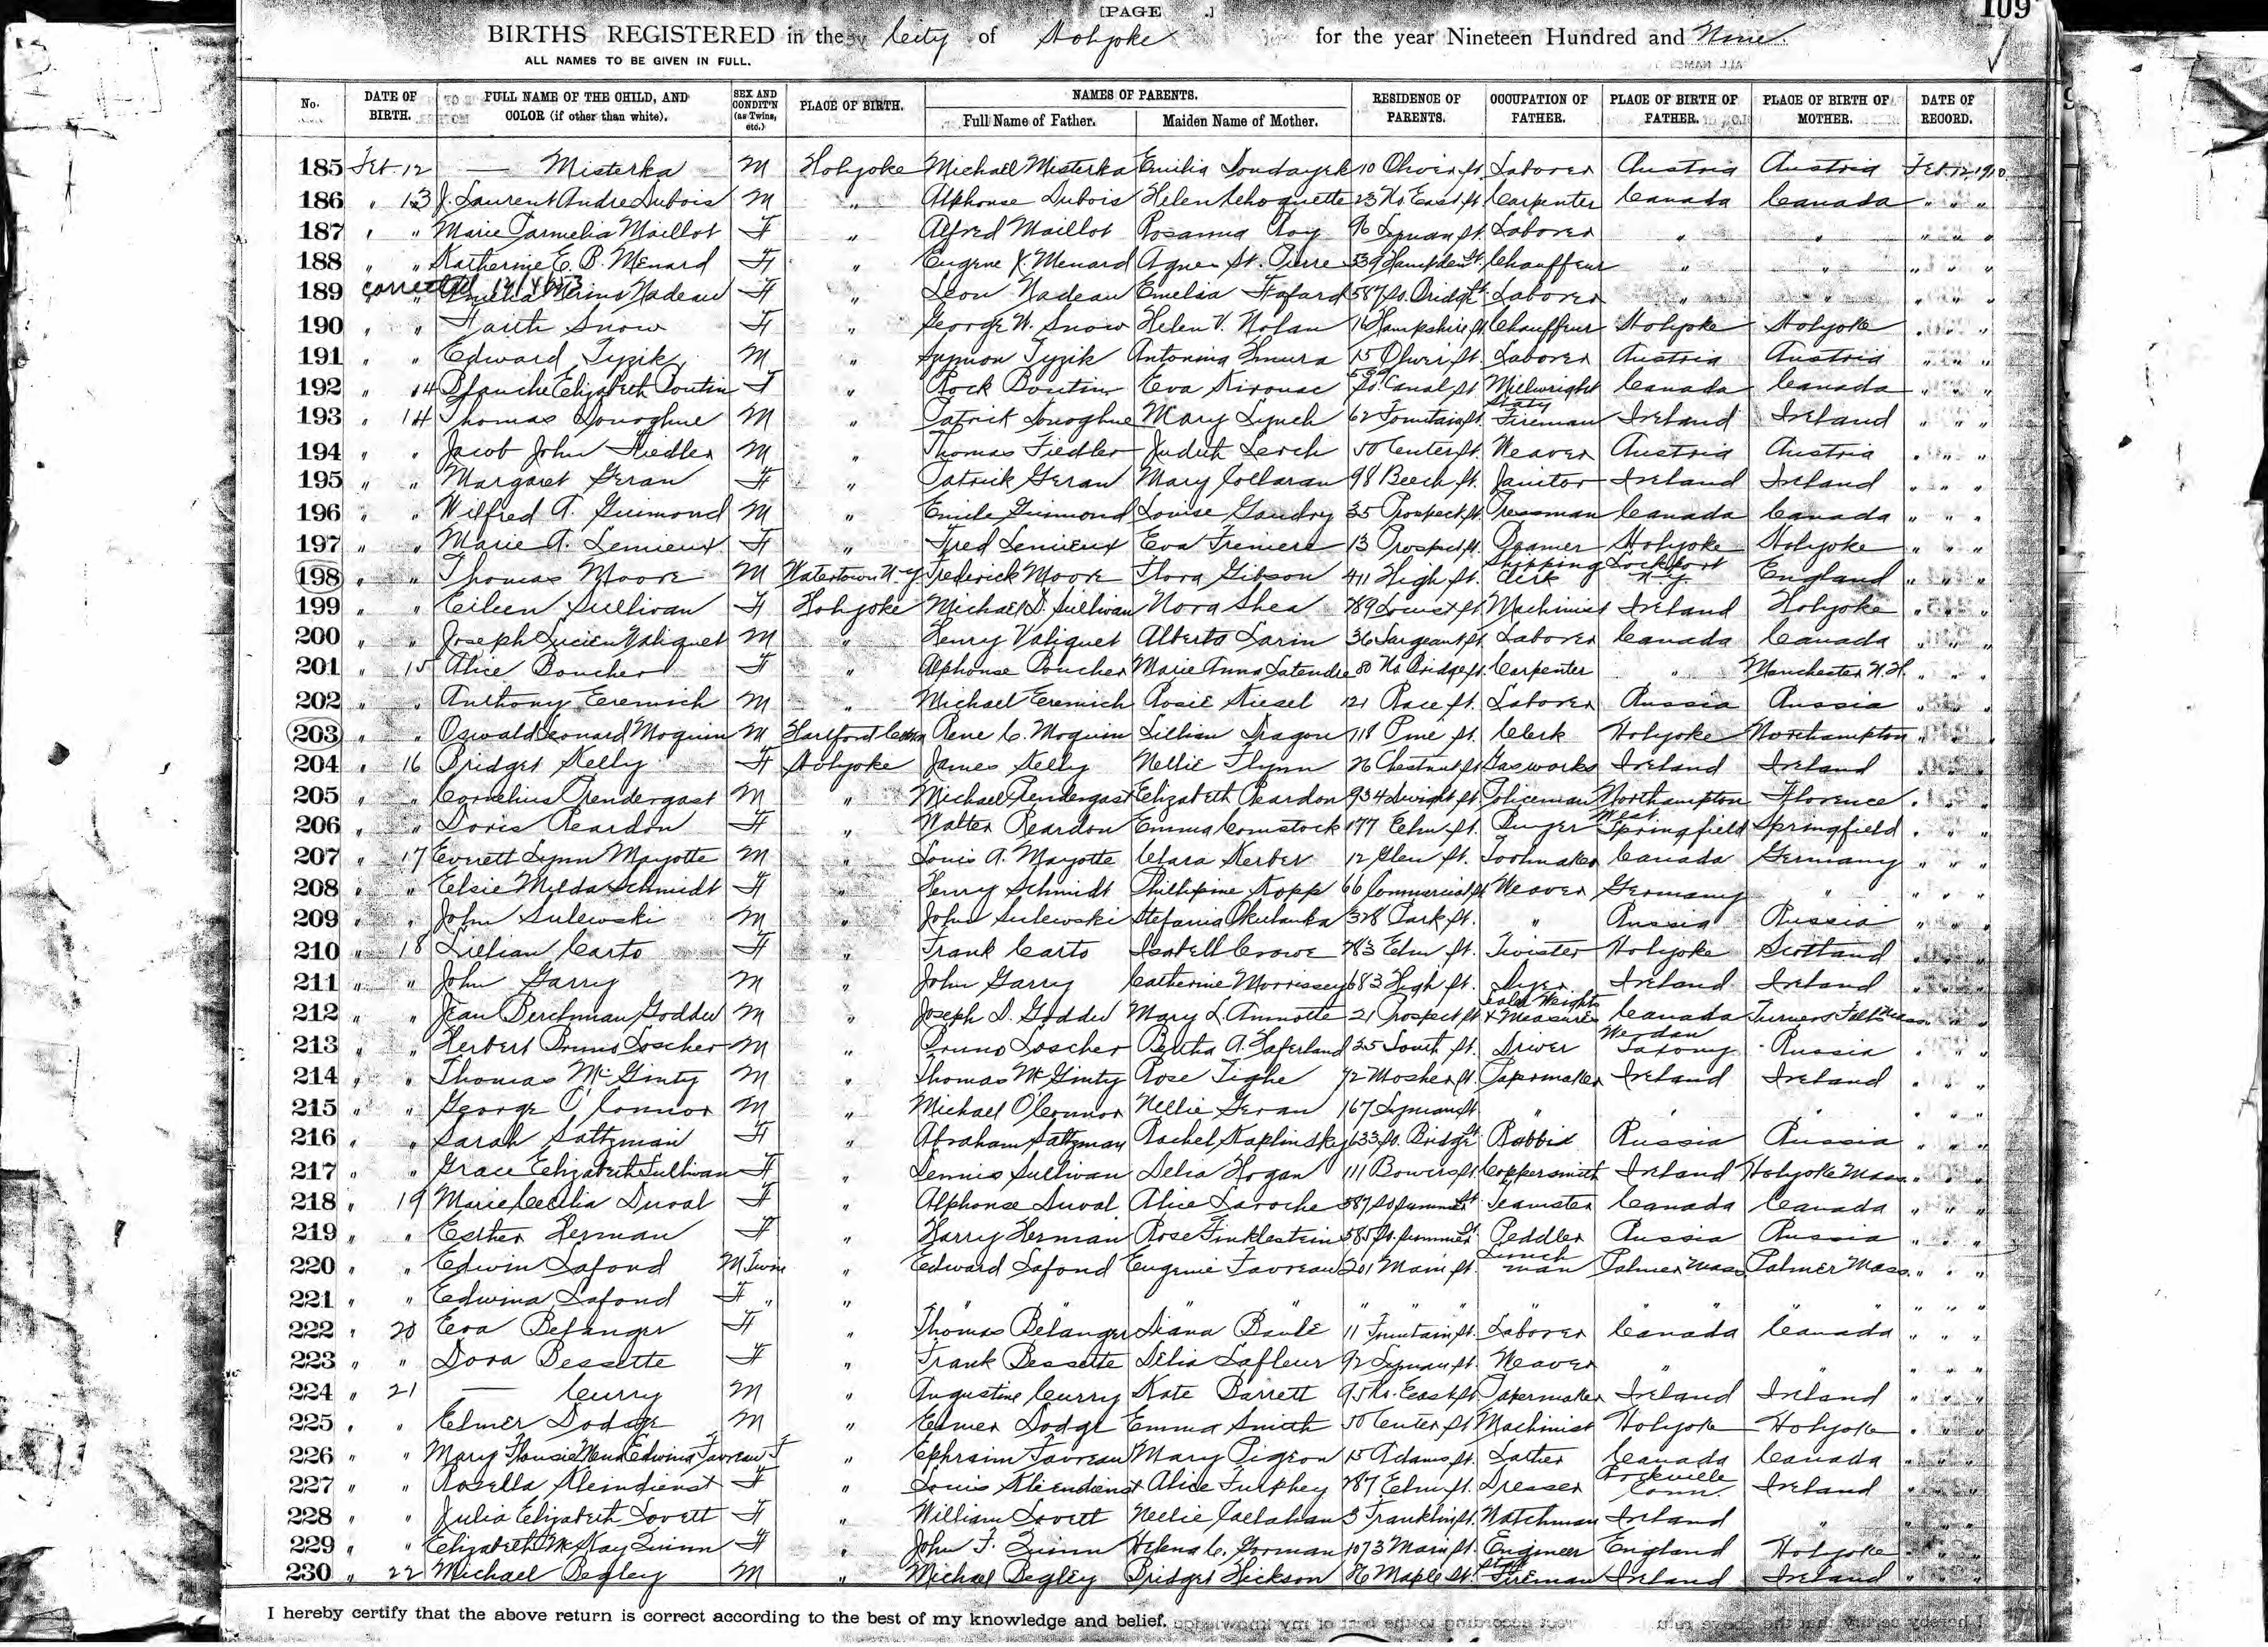 [PAGE .] 109
BIRTHS REGISTERED in the City of Holyoke for the year Nineteen Hundred and Nine.
ALL NAMES TO BE GIVEN IN FULL.
No. DATE OF BIRTH. FULL NAME OF THE CHILD, AND COLOR (if other than white). SEX AND CONDIT'N (as Twins, etc.) PLACE OF BIRTH. NAMES OF PARENTS. Full Name of Father. Maiden Name of Mother. RESIDENCE OF PARENTS. OCCUPATION OF FATHER. PLACE OF BIRTH OF FATHER. PLACE OF BIRTH OF MOTHER. DATE OF RECORD.
185 Feb. 12 — Misterka M Holyoke Michael Misterka Emilia 10 Oliver st. Laborer Austria Austria Feb. 12, 1910.
186 " 13 J. Laurent Andre Dubois M " Alphonse Dubois Helen Choquette 23 No East st. Carpenter Canada Canada " " "
187 " " Marie Parmelia Maillot F " Alfred Maillot Rosanna Roy 96 Lyman st. Laborer " " " " "
188 " " Katherine E. B. Menard F " Eugene X. Menard Agnes St. Pierre 339 Hampden St. Chauffeur " " " " "
189 corrected Nadeau F " Leon Nadeau Emelia Fafard 587 So. Bridge St. Laborer " " " " "
190 " " Faith Snow F " George W. Snow Helen V. Nolan 16 Hampshire st. Chauffeur Holyoke Holyoke " " "
191 " " Edward Tyzik M " Szymon Tyzik Antonina Hmura 15 Oliver st. Laborer Austria Austria " " "
192 " 14 Blanche Elizabeth Boutin F " Rock Boutin Eva Kirouac So. Canal st Millwright Canada Canada " " "
193 " 14 Thomas Donoghue M " Patrick Donoghue Mary Lynch 62 Fountain st. Staty Fireman Ireland Ireland " " "
194 " " Jacob John Fiedler M " Thomas Fiedler Judith Lerch 50 Center st. Weaver Austria Austria " " "
195 " " Margaret Geran F " Patrick Geran Mary Collaran 98 Beech st. Janitor Ireland Ireland " " "
196 " " Wilfred A. Guimond M " Emile Guimond Louise Gaudry 35 Prospect st. Pressman Canada Canada " " "
197 " " Marie A. Lemieux F " Fred Lemieux Eva Freniere 13 Prospect st. Holyoke Holyoke " " "
198 " " Thomas Moore M Watertown N-Y Frederick Moore Flora Gibson 411 High st. Shipping Clerk Lockport N-Y England " " "
199 " " Eileen Sullivan F Holyoke Michael D. Sullivan Nora Shea 289 Locust st. Machinist Ireland Holyoke " " "
200 " " Joseph Lucien Valiquet M " Henry Valiquet Alberta Larin 36 Sargeant st. Laborer Canada Canada " " "
201 " 15 Alice Boucher F " Alphonse Boucher Marie Anna Latendre 80 No Bridge st. Carpenter " Manchester N.H. " " "
202 " " Anthony Eremich M " Michael Eremich Rosie Kiesel 121 Race st. Laborer Russia Russia " " "
203 " " Oswald Leonard Moquin M Hartford Conn Rene C. Moquin Lillian Dragon 718 Pine st. Clerk Holyoke Northampton " " "
204 " 16 Bridget Kelly F Holyoke James Kelly Nellie Flynn 26 Chestnut st Gasworks Ireland Ireland " " "
205 " " Cornelius Prendergast M " Michael Prendergast Elizabeth Reardon 934 Dwight st. Policeman Northampton Florence " " "
206 " " Doris Reardon F " Walter Reardon Emma Comstock 177 Elm st. West Springfield Springfield " " "
207 " 17 Everett Lynn Mayotte M " Louis A. Mayotte Clara Kerber 12 Glen st. Toolmaker Canada Germany " " "
208 " " Elsie Milda Schmidt F " Henry Schmidt Phillipine Kopp 66 Commercial st Weaver Germany " " " "
209 " " John Sulewski M " John Sulewski Stefania 328 Park st. " Russia Russia " " "
210 " 18 Lillian Carto F " Frank Carto Isabell Crowe 783 Elm st. Twister Holyoke Scotland " " "
211 " " John Garry M " John Garry Catherine Morrissey 683 High st. Dyer Ireland Ireland " " "
212 " " Jean Berchman Goddu M " Joseph D. Goddu Mary L. Amnotte 21 Prospect st Weights & Measures Canada Turners Falls Mass. " "
213 " " Herbert Bruno Loscher M " Bruno Loscher Bertha A. Haferland 25 South st. Driver Werdau Saxony Russia " " "
214 " " Thomas McGinty M " Thomas McGinty Rose Tighe 72 Mosher st. Papermaker Ireland Ireland " " "
215 " " George O'Connor M " Michael O'Connor Nellie Geran 167 Lyman st " " " " " "
216 " " Sarah Saltzman F " Abraham Saltzman Rachel Kaplinsky 633 So. Bridge St Rabbi Russia Russia " " "
217 " " Grace Elizabeth Sullivan F " Dennis Sullivan Delia Hogan 111 Bowers st. Coppersmith Ireland Holyoke Mass. " " "
218 " 19 Marie Cecelia Duval F " Alphonse Duval Alice Laroche 587 So Summer St. Teamster Canada Canada " " "
219 " " Esther Herman F " Harry Herman Rose Finklestein 585 So. Summer St Peddler Russia Russia " " "
220 " " Edwin Lafond M Twins " Edward Lafond Eugenie Favreau 201 Main st. Lunch man Palmer Mass Palmer Mass. " " "
221 " " Edwina Lafond F " " " " " " " " " " " "
222 " 20 Eva Belanger F " Thomas Belanger Diana Baule 11 Fountain st. Laborer Canada Canada " " "
223 " " Dora Bessette F " Frank Bessette Delia Lafleur 92 Lyman st. Weaver " " " " "
224 " 21 — Curry M " Augustine Curry Kate Barrett 95 No. East st Papermaker Ireland Ireland " " "
225 " " Elmer Dodge M " Elmer Dodge Emma Smith 50 Center st Machinist Holyoke Holyoke " " "
226 " " Mary Edwina Favreau F " Ephraim Favreau Mary Pigeon 15 Adams st. Lather Canada Canada " " "
227 " " Rosella Kleindienst F " Louis Kleindienst Alice Turphey 287 Elm st. Dresser Rockville Conn. Ireland " " "
228 " " Julia Elizabeth Lovett F " William Lovett Nellie Callahan 3 Franklin st. Watchman Ireland " " " "
229 " " Elizabeth McKay Quinn F " John F. Quinn Helena C. Gorman 1073 Main st. Engineer England Holyoke " " "
230 " 22 Michael Begley M " Michael Begley Bridget Hickson 86 Maple st. Staty Fireman Ireland Ireland " " "
I hereby certify that the above return is correct according to the best of my knowledge and belief.